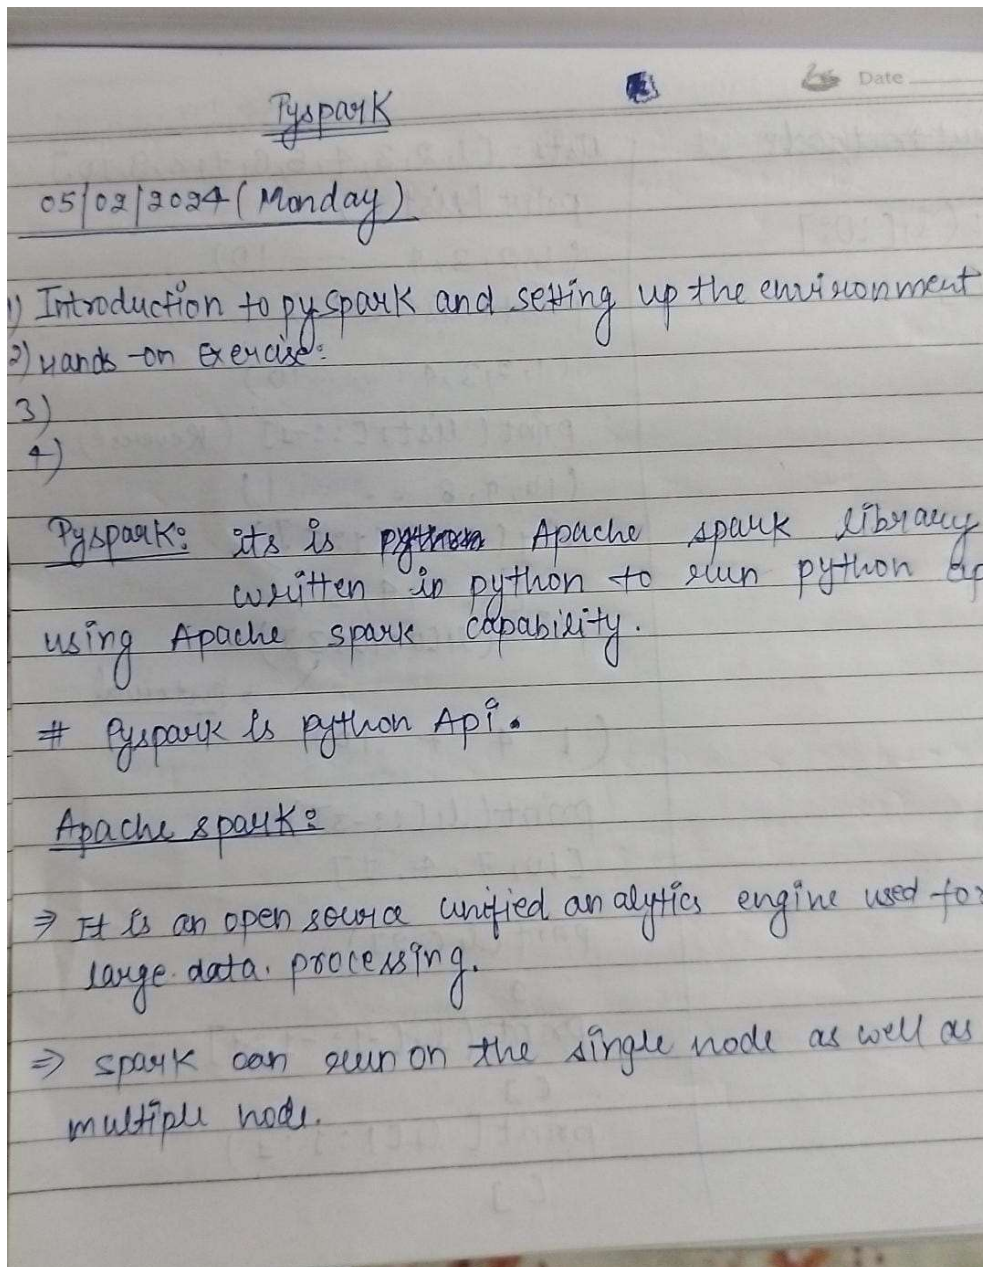 Date
Pyspark
05/02/2024 (Monday)
1) Introduction to pyspark and setting up the environment
2) Hands-on Exercise:
3)
4)
Pyspark: its is Apache spark library
written in python to run python
using Apache spark capability.
# Pyspark is python Api.
Apache spark:
⇒ It is an open source unified analytics engine used for
large data. processing.
⇒ spark can run on the single node as well as
multiple node.